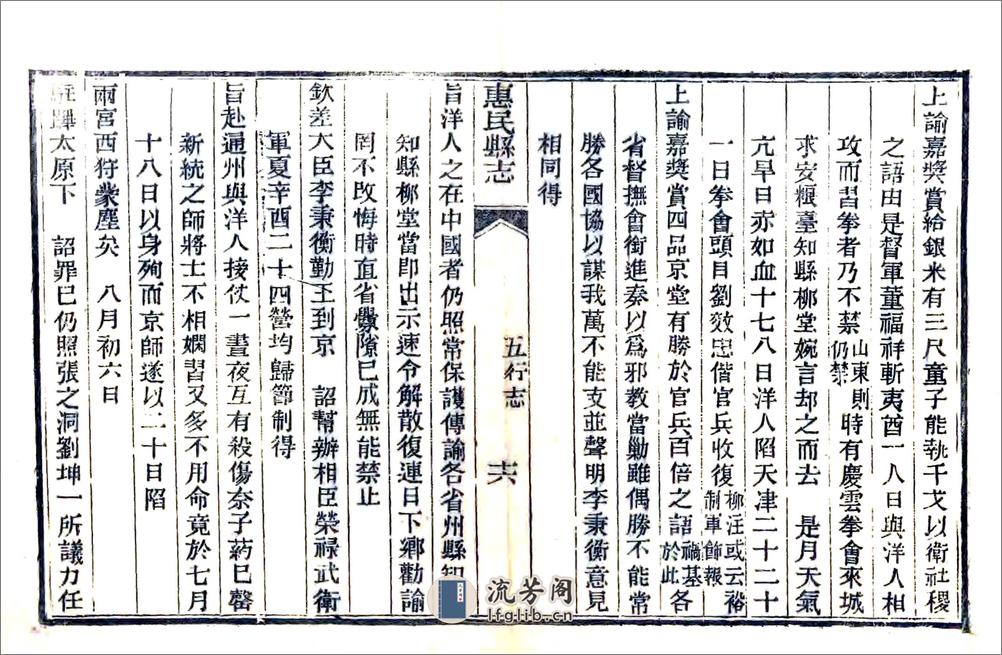 上諭嘉獎賞給銀米有三尺童子能執干戈以衛社稷
之語由是督軍董福祥斬夷酋一八日與洋人相
攻而習拳者乃不禁山東則仍禁時有慶雲拳會來城
求安糧臺知縣柳堂婉言却之而去　是月天氣
亢旱日赤如血十七八日洋人陷天津二十二十
一日拳會頭目劉效忠偕官兵收復柳汪或云裕制軍飾報
上諭嘉獎賞四品京堂有勝於官兵百倍之語禍基於此各
省督撫會銜進奏以爲邪教當勦雖偶勝不能常
勝各國協以謀我萬不能支並聲明李秉衡意見
相同得
惠民縣志　五行志　十六
旨洋人之在中國者仍照常保護傳諭各省州縣知
知縣柳堂當即出示速令解散復連日下鄉勸諭
罔不改悔時直省釁隙已成無能禁止
欽差大臣李秉衡勤王到京　詔幫辦相臣榮祿武衛
軍夏辛酉二十四營均歸節制得
旨赴通州與洋人接仗一晝夜互有殺傷奈子藥已罄
新統之師將士不相嫻習又多不用命竟於七月
十八日以身殉而京師遂以二十日陷
兩宮西狩蒙塵矣　八月初六日
駐蹕太原下　詔罪已仍照張之洞劉坤一所議力任
流芳阁
lfglib.cn